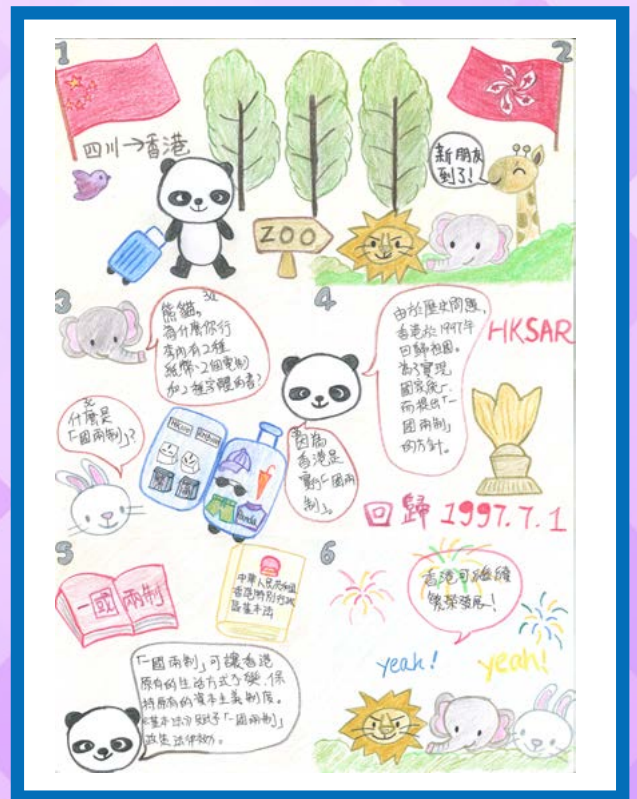 1
2
四川→香港
新朋友
到了!
ZOO
3
熊貓,
為什麼你行
李內有2種
紙幣、2個電制
和2種字體的書?
什麼是
「一國兩制」?
HK$100
因為
香港是
實行「一國兩
制」。
4
由於歷史問題,
香港於1997年
回歸祖國。
為了實現
國家統一,
而提出「一
國兩制」
的方針。
HKSAR
回歸 1997.7.1
5
一國 兩制
中華人民共和國
香港特別行政
區基本法
「一國兩制」可讓香港
原有的生活方式不變,保
持原有的資本主義制度。
《基本法》賦予「一國兩制」
政策法律效力。
6
香港可繼續
繁榮發展!
yeah!
yeah!